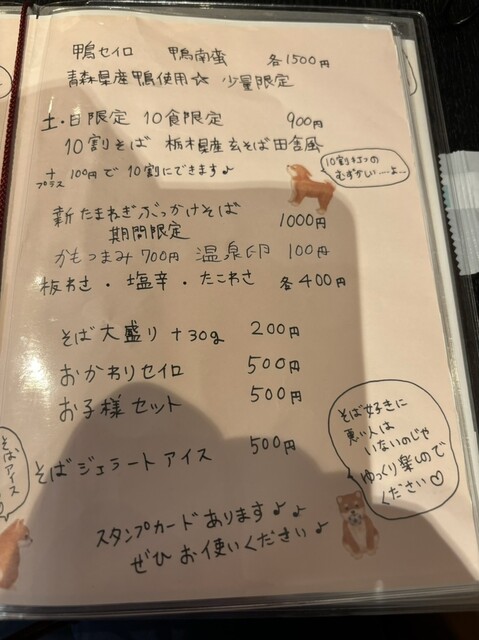 鴨セイロ 鴨南蛮 各1500円
青森県産鴨使用☆ 少量限定
土・日限定 10食限定 900円
10割そば 栃木県産玄そば田舎風
+プラス 100円で 10割にできます♪
10割打つの
むずかしい…よ…
新たまねぎぶっかけそば 1000円
期間限定
かもつまみ 700円 温泉卵 100円
板わさ・塩辛・たこわさ 各400円
そば大盛り +30g 200円
おかわりセイロ 500円
お子様セット 500円
そばジェラートアイス 500円
そば好きに
悪い人は
いないのじゃ
ゆっくり楽しので
ください♡
そばアイス
スタンプカードあります♪♪
ぜひお使いください♪